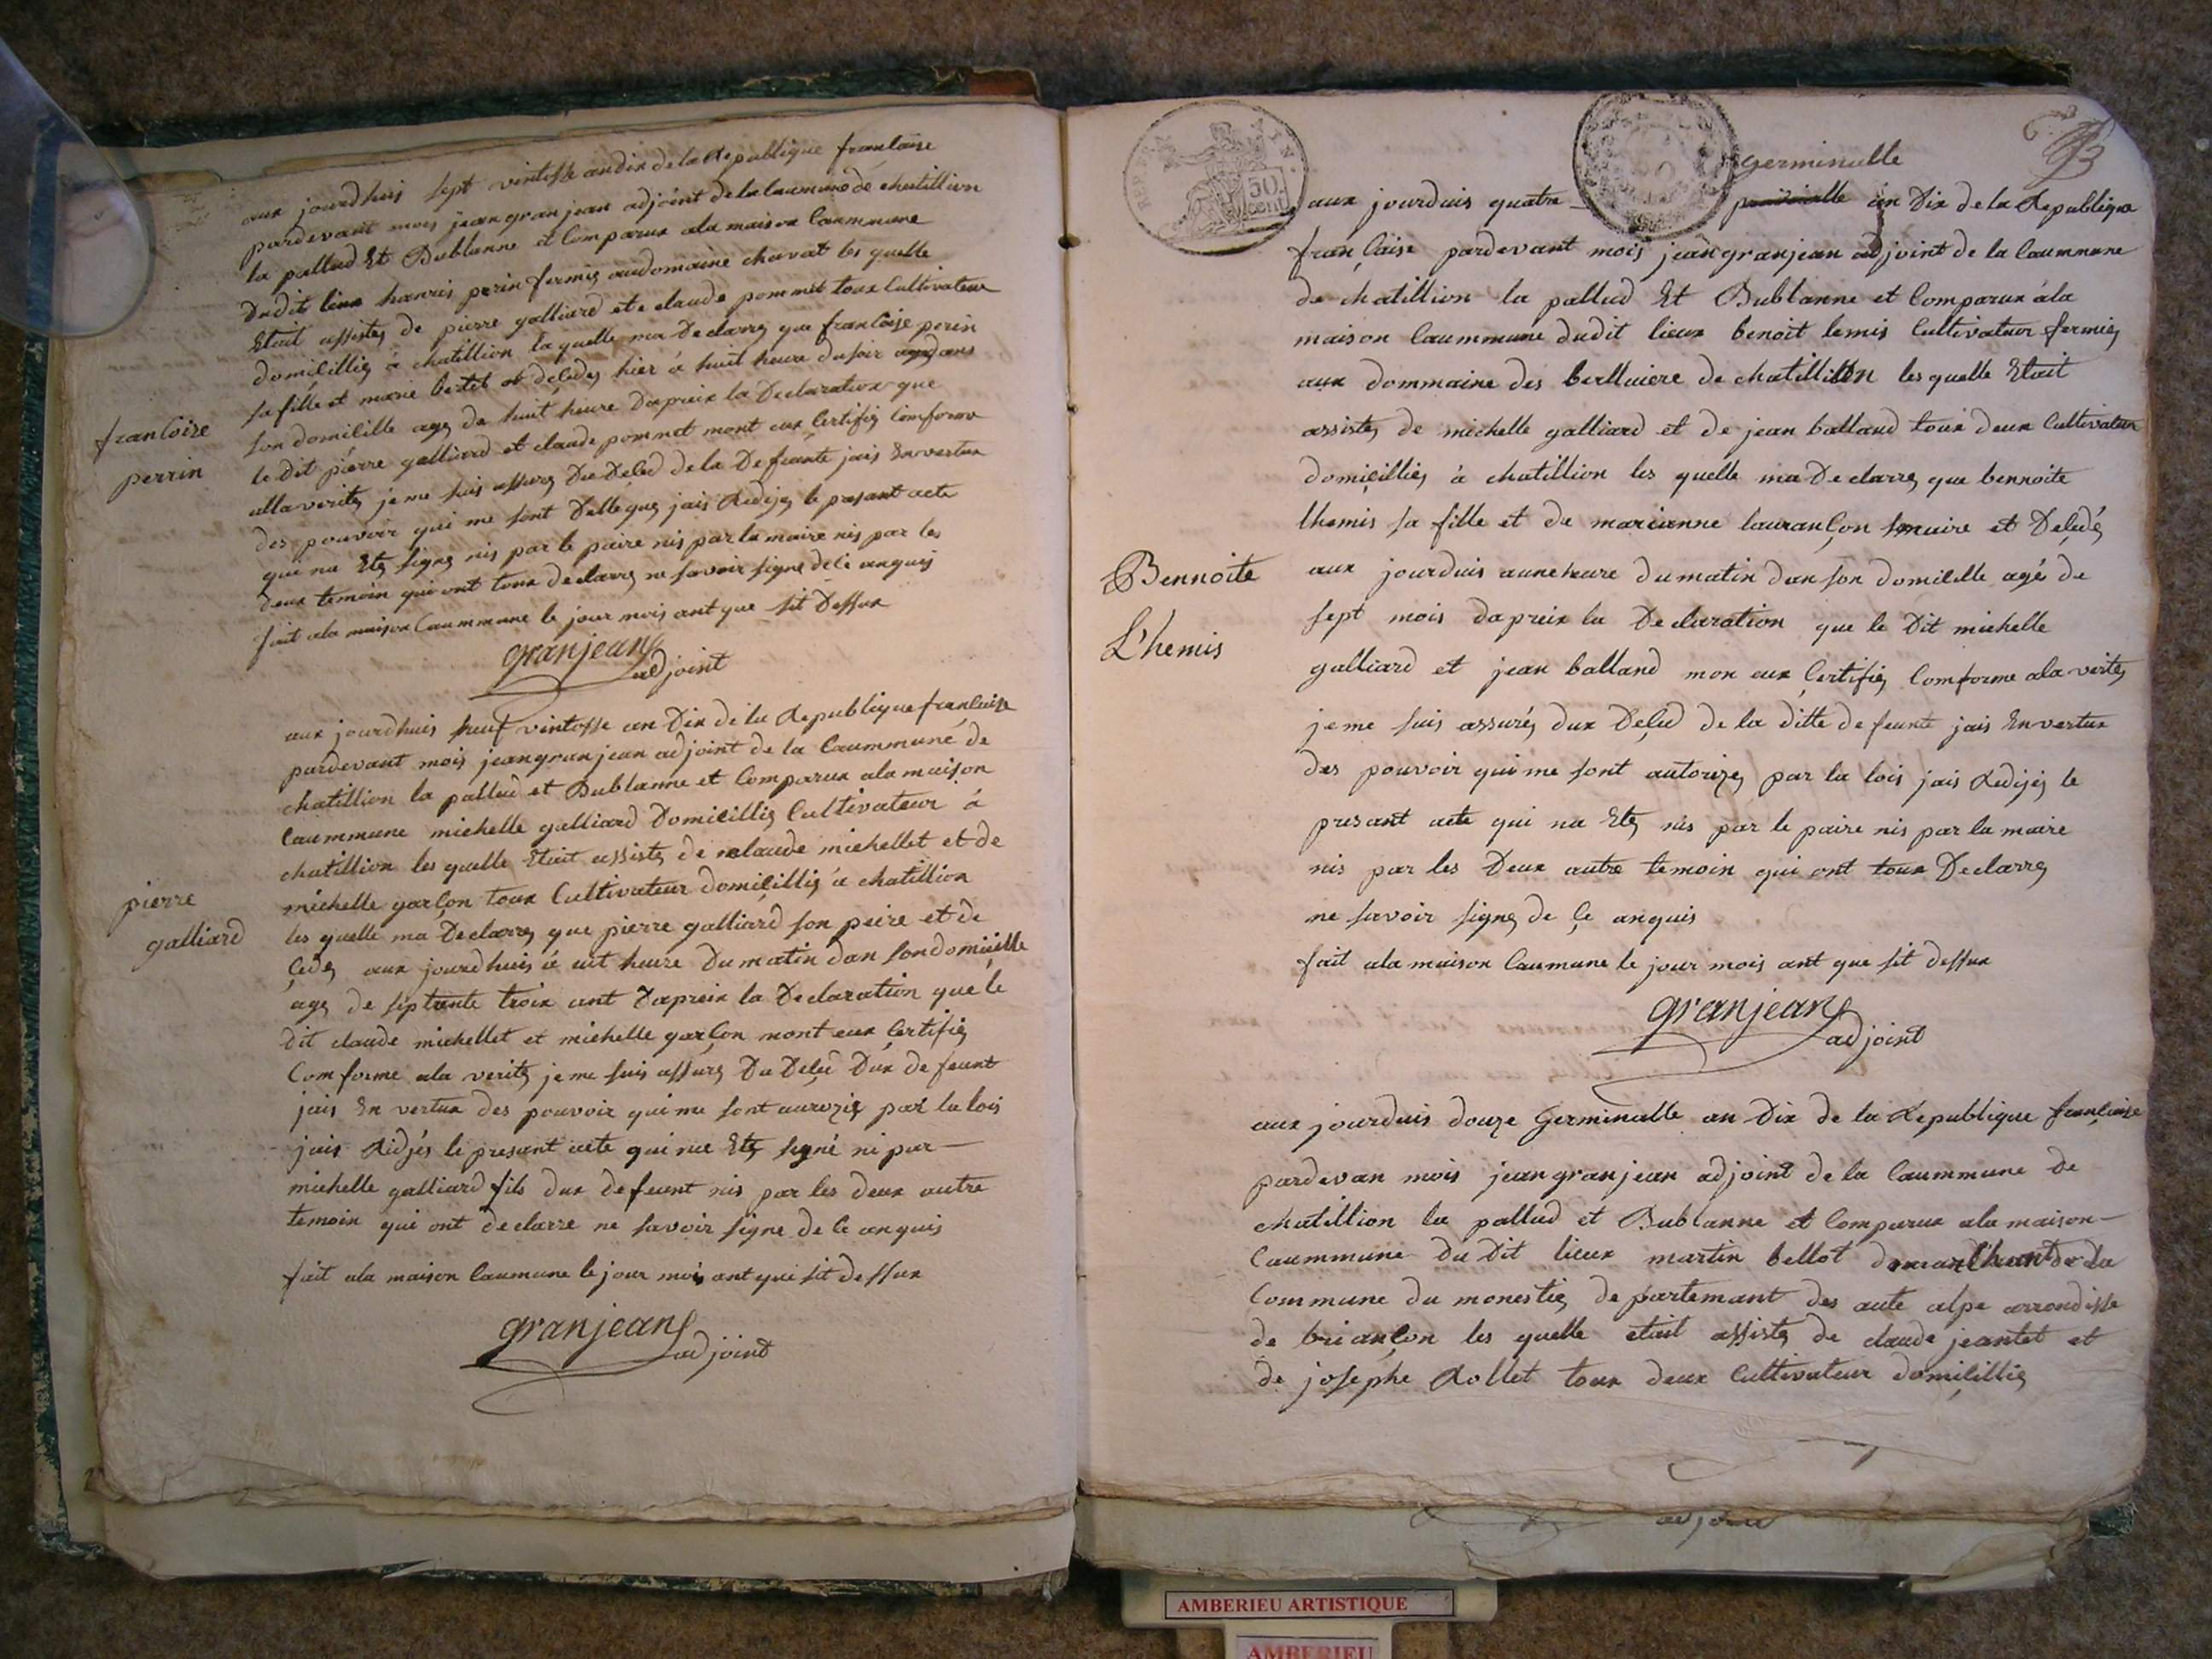 aux jourdhuis sept vintosse an dix de la Republique francaise
pardevant mois jean granjean adjoint de la Caummune de chatillion
la pallud Et Bublanne et Comparux a la maison Caummune
Dudit lieux hanris perin fermies audomaine chavat les quelle
Etait assistes de pierre galliard et e claude pommet toux Cultivateur
domicillies à chatillion la quelle ma Declarres que francoise perin
sa fille et marie bertet et decedes hier à huit heure du soir dans
francoise
perrin
son domicille ages de huit heure Dapreix la Declaration que
le Dit pierre galliard et claude pommet mont eux Certifies Comforme
alla verites je me suis assures Du Deced de la Defeunte jais En vertux
des pouvoir qui me sont Delleques jais Redijes le presant acte
qui na Etes signes nis par le paire nis par la maire nis par les
deux temoin qui ont toux declarres ne savoir signe de ce anquis
fait ala maison Caummune le jour mois ant que sit Dessux
granjean
adjoint
aux jourdhuis neuf vintosse an Dix de la Republique francaise
pardevant mois jean granjean adjoint de la Caummune de
chatillion la pallud et Bublanne et Comparux ala maison
Caummune michelle galliard Domicillies Cultivateur à
chatillion les quelle Etait assistes de claude michellet et de
michelle garcon toux Cultivateur domicillies à chatillion
pierre
galliard
les quelle ma Declarres que pierre galliard son peire et de
cedes aux jourdhuis à uit heure Du matin dan son domicille
ages de siptante troix ant Dapreix la Declaration que le
Dit claude michellet et michelle garcon mont eux Certifies
Comforme ala verites je me suis assures Du Deced Dux defeunt
jais En vertux des pouvoir qui me sont aurozis par la lois
jais Ridjés le presant acte qui na Etes signé ni par
michelle galliard fils dux defeunt nis par les deux autre
temoin qui ont declarre ne savoir signe de ce anquis
fait ala maison Caumune le jour mois ant que sit dessux
granjean
adjoint
REPUB
50.
cent
germinalle
aux jourduis quatre an Dix de la Republique
française pardevant mois jean granjean adjoint de la Caummune
de chatillion la pallud Et Bublanne et Comparux àla
maison Caummune dudit lieux benoit lemis Cultivateur fermies
aux dommaine des berlluiere de chatillion les quelle Etait
assistes de michelle galliard et de jean balland toux deux Cultivateur
domicillies à chatillion les quelle ma Declarres que bennoite
lhemis sa fille et de marianne laurançon sa maire et Decédés
Bennoite
L'hemis
aux jourduis a une heure du matin dan son domicille agé de
sept mois dapreix la Declaration que le Dit michelle
galliard et jean balland mon eux Certifies Comforme ala verites
je me suis assurés dux Deced de la ditte defeunte jais En vertux
des pouvoir qui me sont autorizes par la lois jais Redijes le
presant acte qui na Etes nis par le paire nis par la maire
nis par les Deux autre temoin qui ont toux Declarres
ne savoir signes de ce anquis
fait ala maison Caumune le jour mois ant que sit dessux
granjean
adjoint
aux jourduis douze Germinalle an Dix de la Republique française
pardevan mois jean granjean adjoint de la Caummune de
chatillion la pallud et Bublanne et Comparux ala maison
Caummune du Dit lieux martin bellot de la
Commune du monesties departemant des aute alpe arrondisse
de briançon les quelle etait assistes de claude jeantet et
de josephe Rollet toux deux Cultivateur domicillies
adjoint
AMBERIEU ARTISTIQUE
AMBERIEU